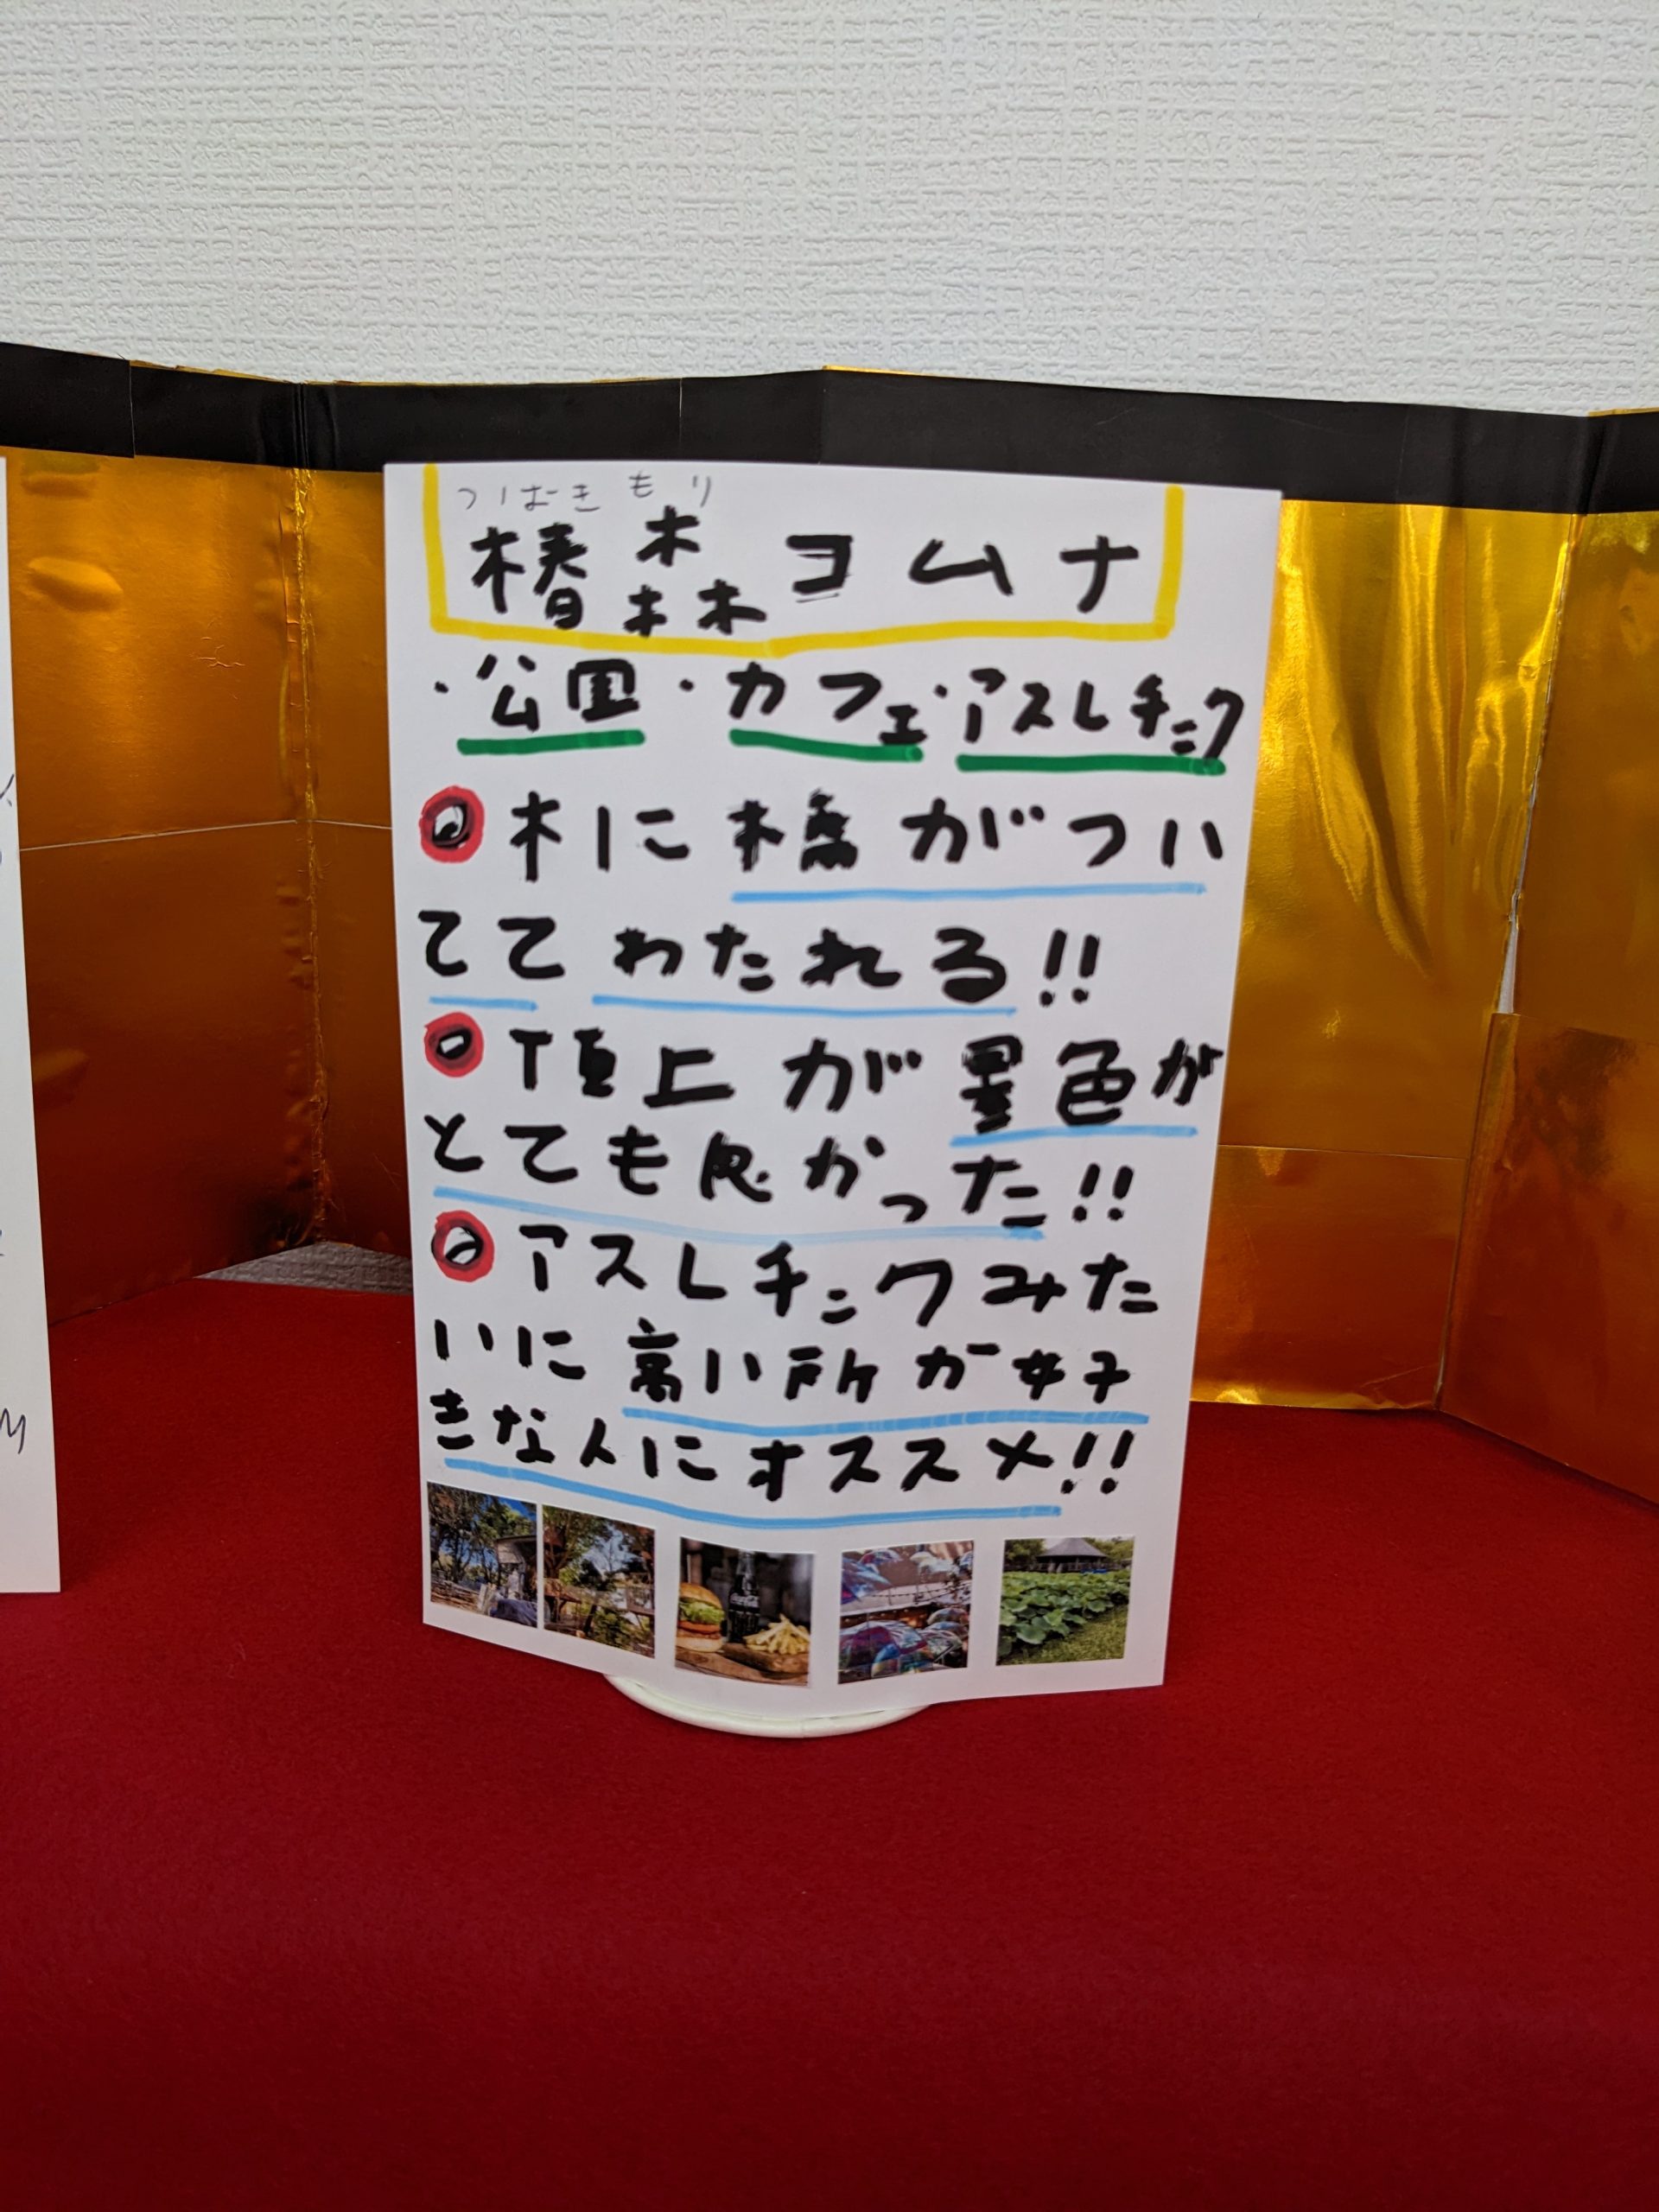 つばきもり
椿森コムナ
・公園・カフェ・アスレチック
木に橋がつい
てて わたれる!!
頂上が景色が
とても良かった!!
アスレチックみた
いに高い所が好
きな人にオススメ!!